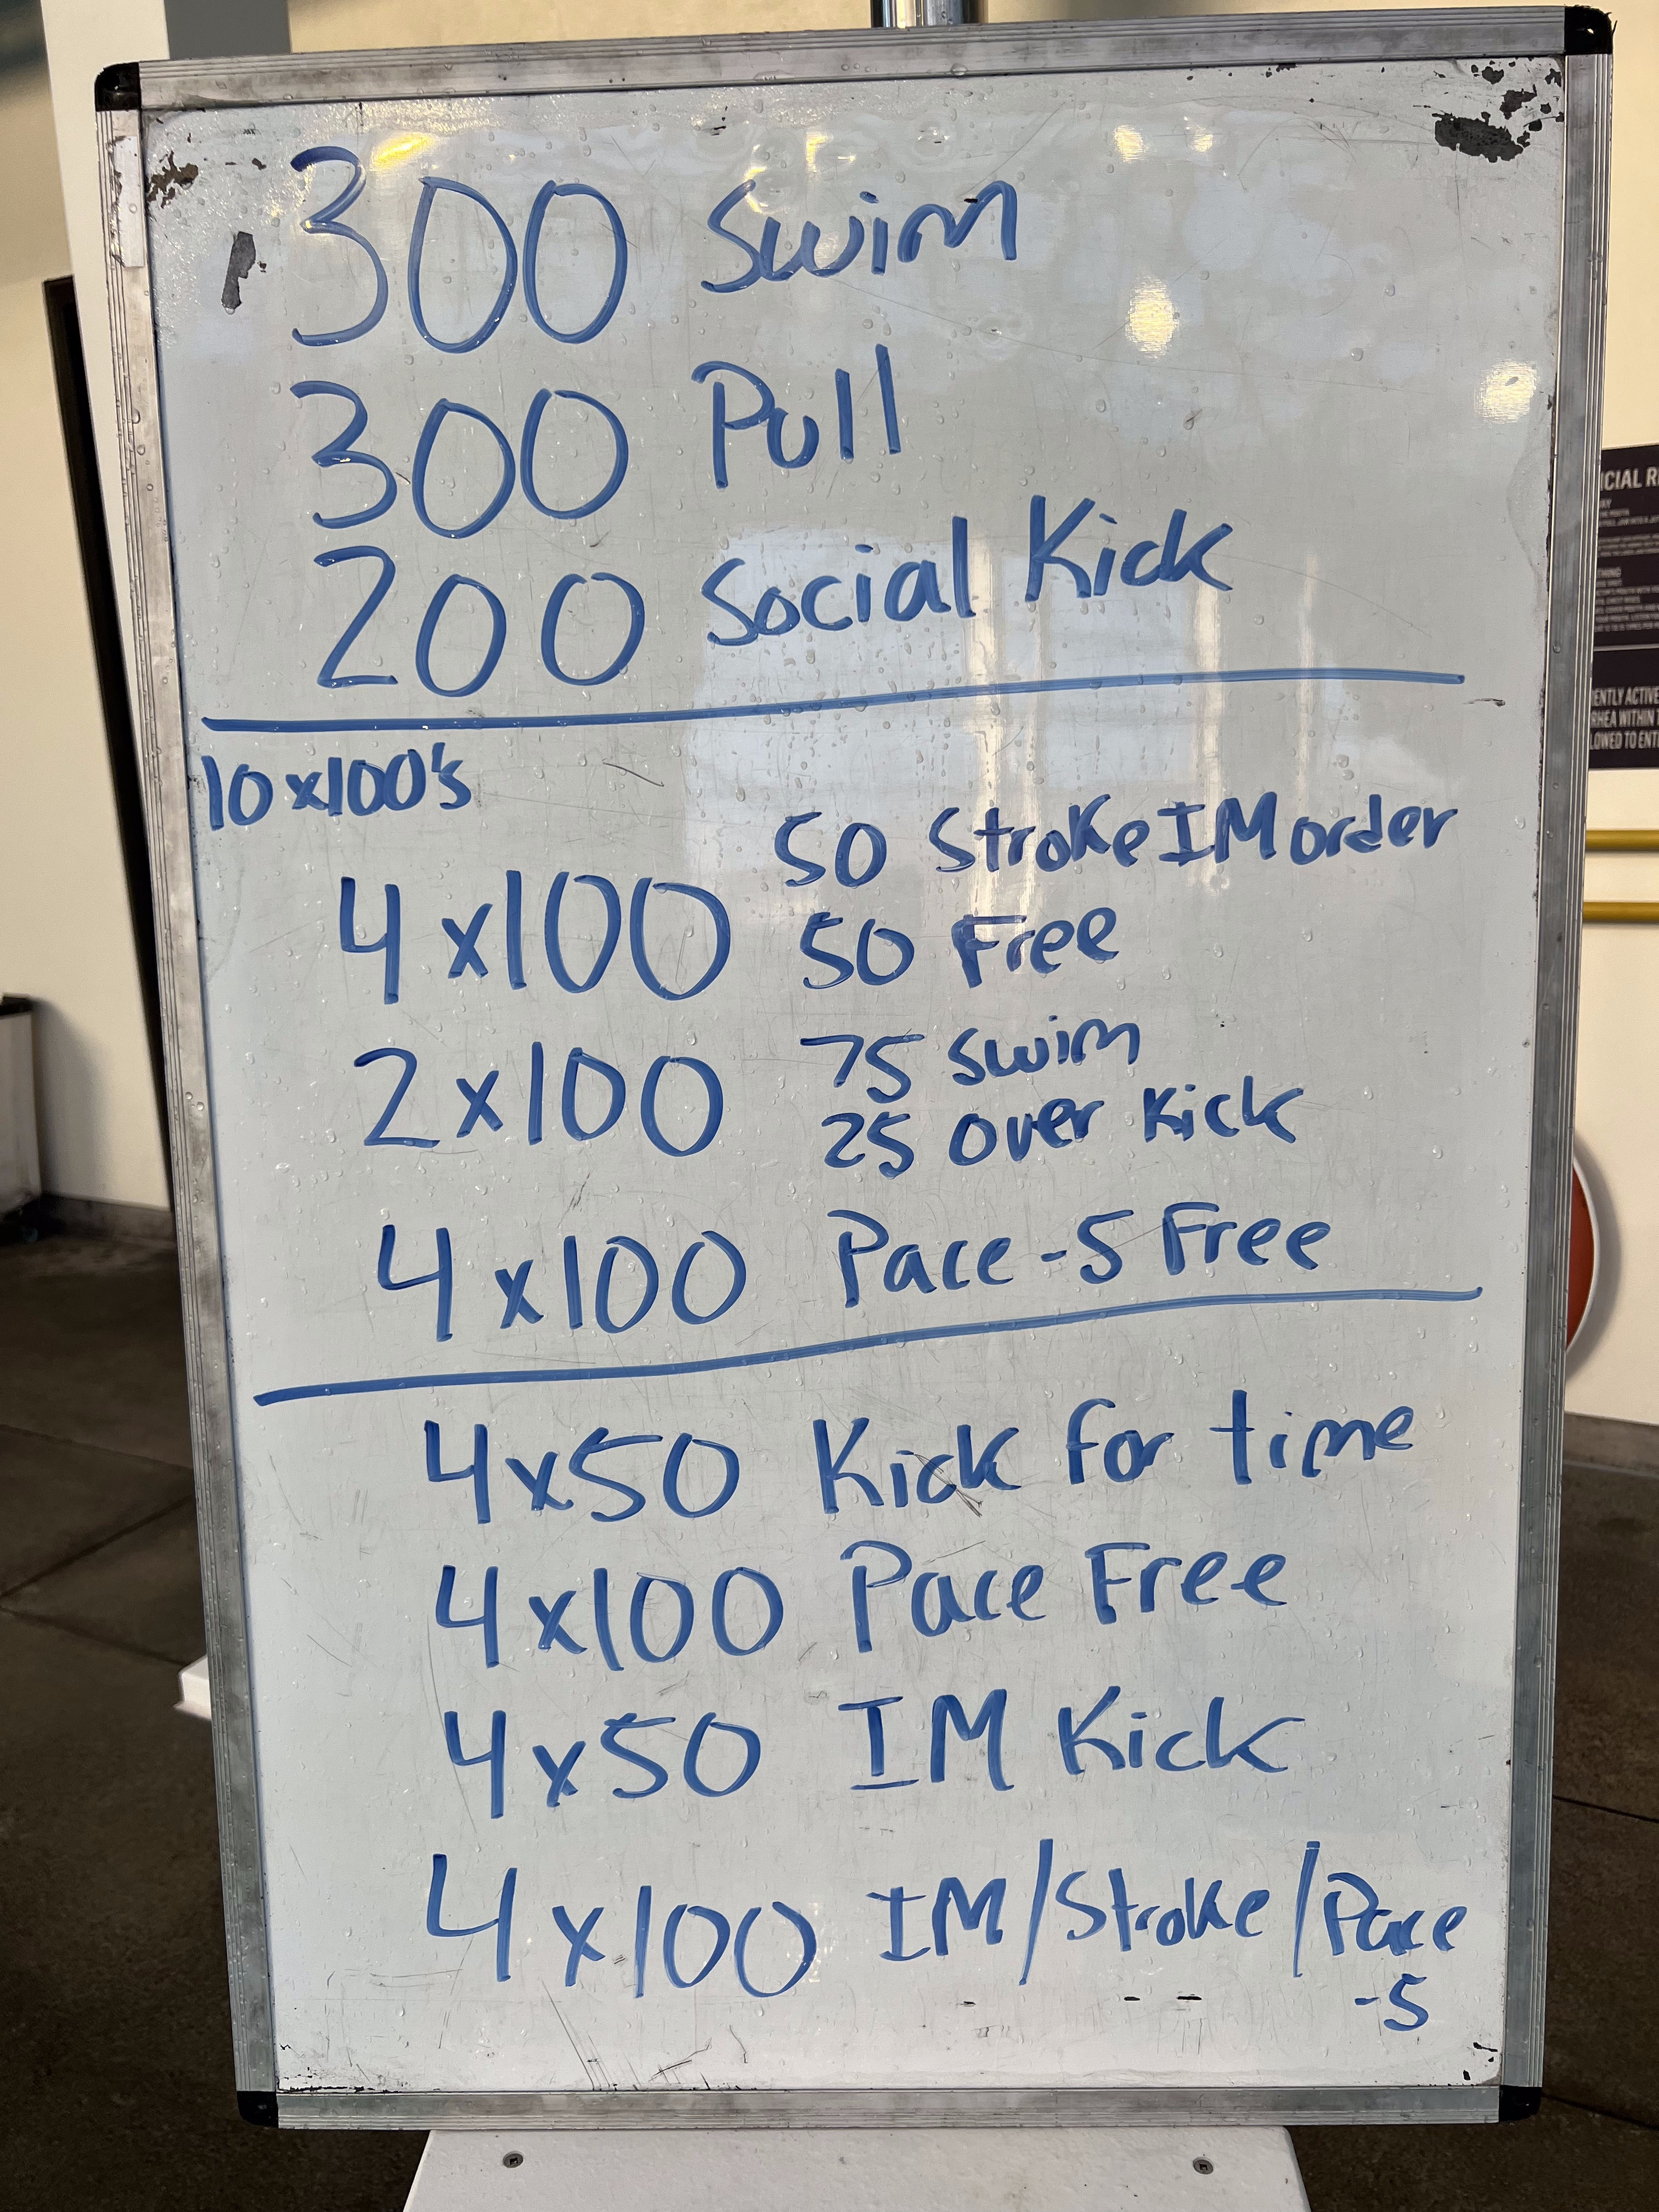 300 Swim
300 Pull
200 Social Kick
10x100's
4x100 50 Stroke IM order
50 Free
2x100 75 Swim
25 over Kick
4x100 Pace -5 Free
4x50 Kick for time
4x100 Pace Free
4x50 IM Kick
4x100 IM/Stroke/Pace
-5
ENTLY ACTIVE
RHEA WITHIN
LOWED TO ENT